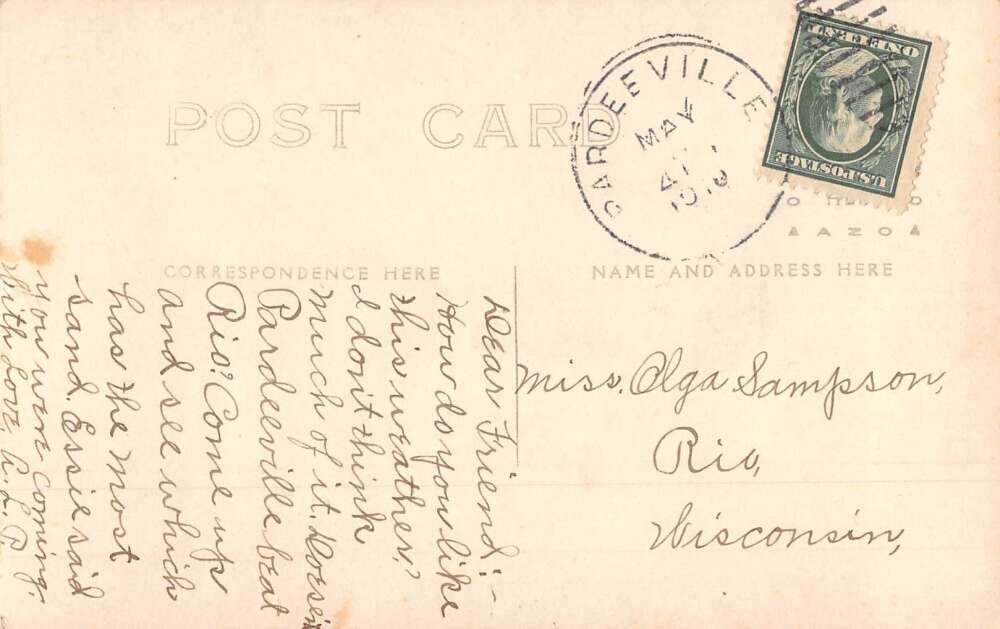 POST CARD
PARDEEVILLE
MAY
1910
ONE CENT
U.S. POSTAGE
AZO
CORRESPONDENCE HERE
NAME AND ADDRESS HERE
Dear Friend:—
How do you like
this weather?
I don't think
much of it. Doesn't
Pardeeville beat
Rio? Come up
and see which
has the most
sand. Essie said
you were coming.
With Love, A. L. P.
Miss. Olga Sampson,
Rio,
Wisconsin,